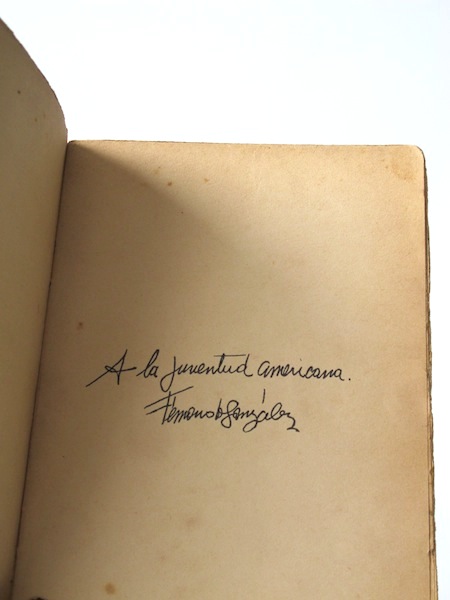 A la juventud americana.
Fernando González